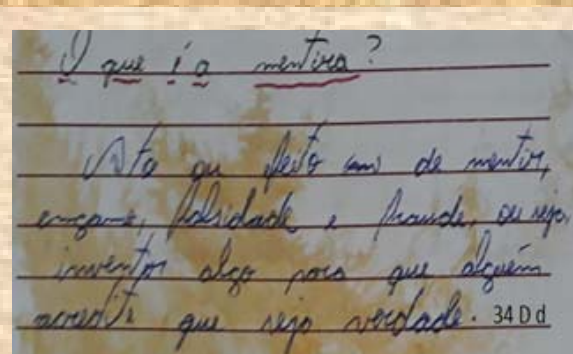 O que é a mentira?
Ato ou feito de mentir,
engano, falsidade e fraude, ou seja,
inventar algo para que alguém
acredite que seja verdade. 34 D d